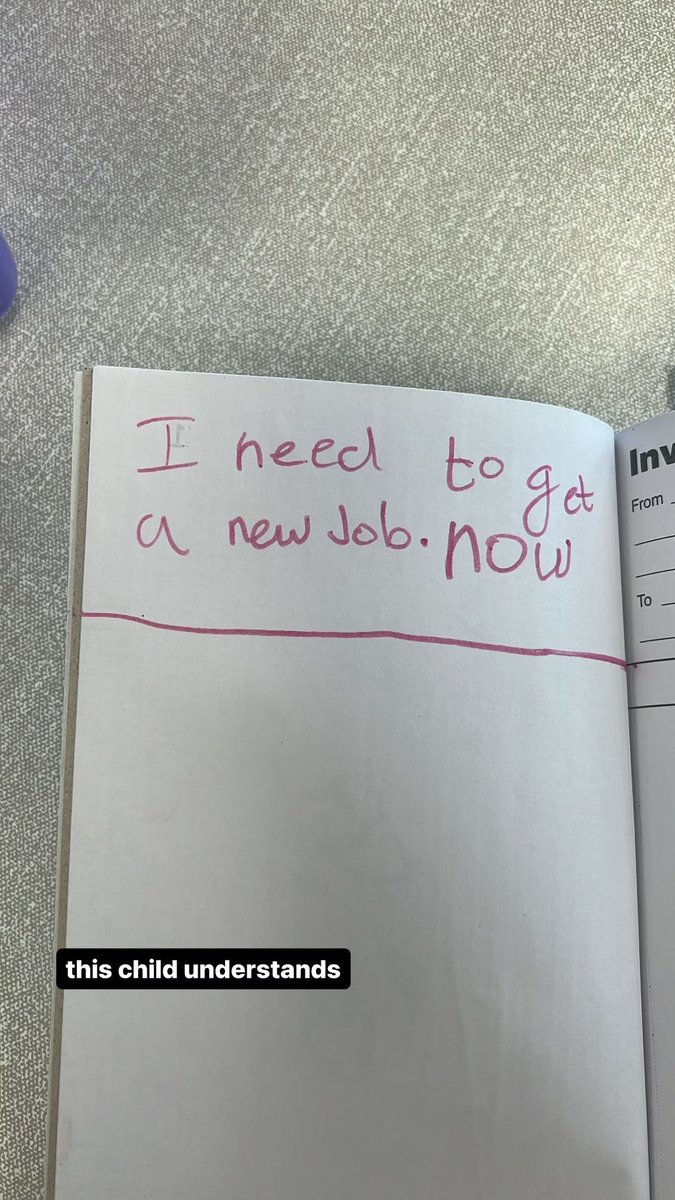 I need to get
a new Job. now
Inv
From
To
this child understands